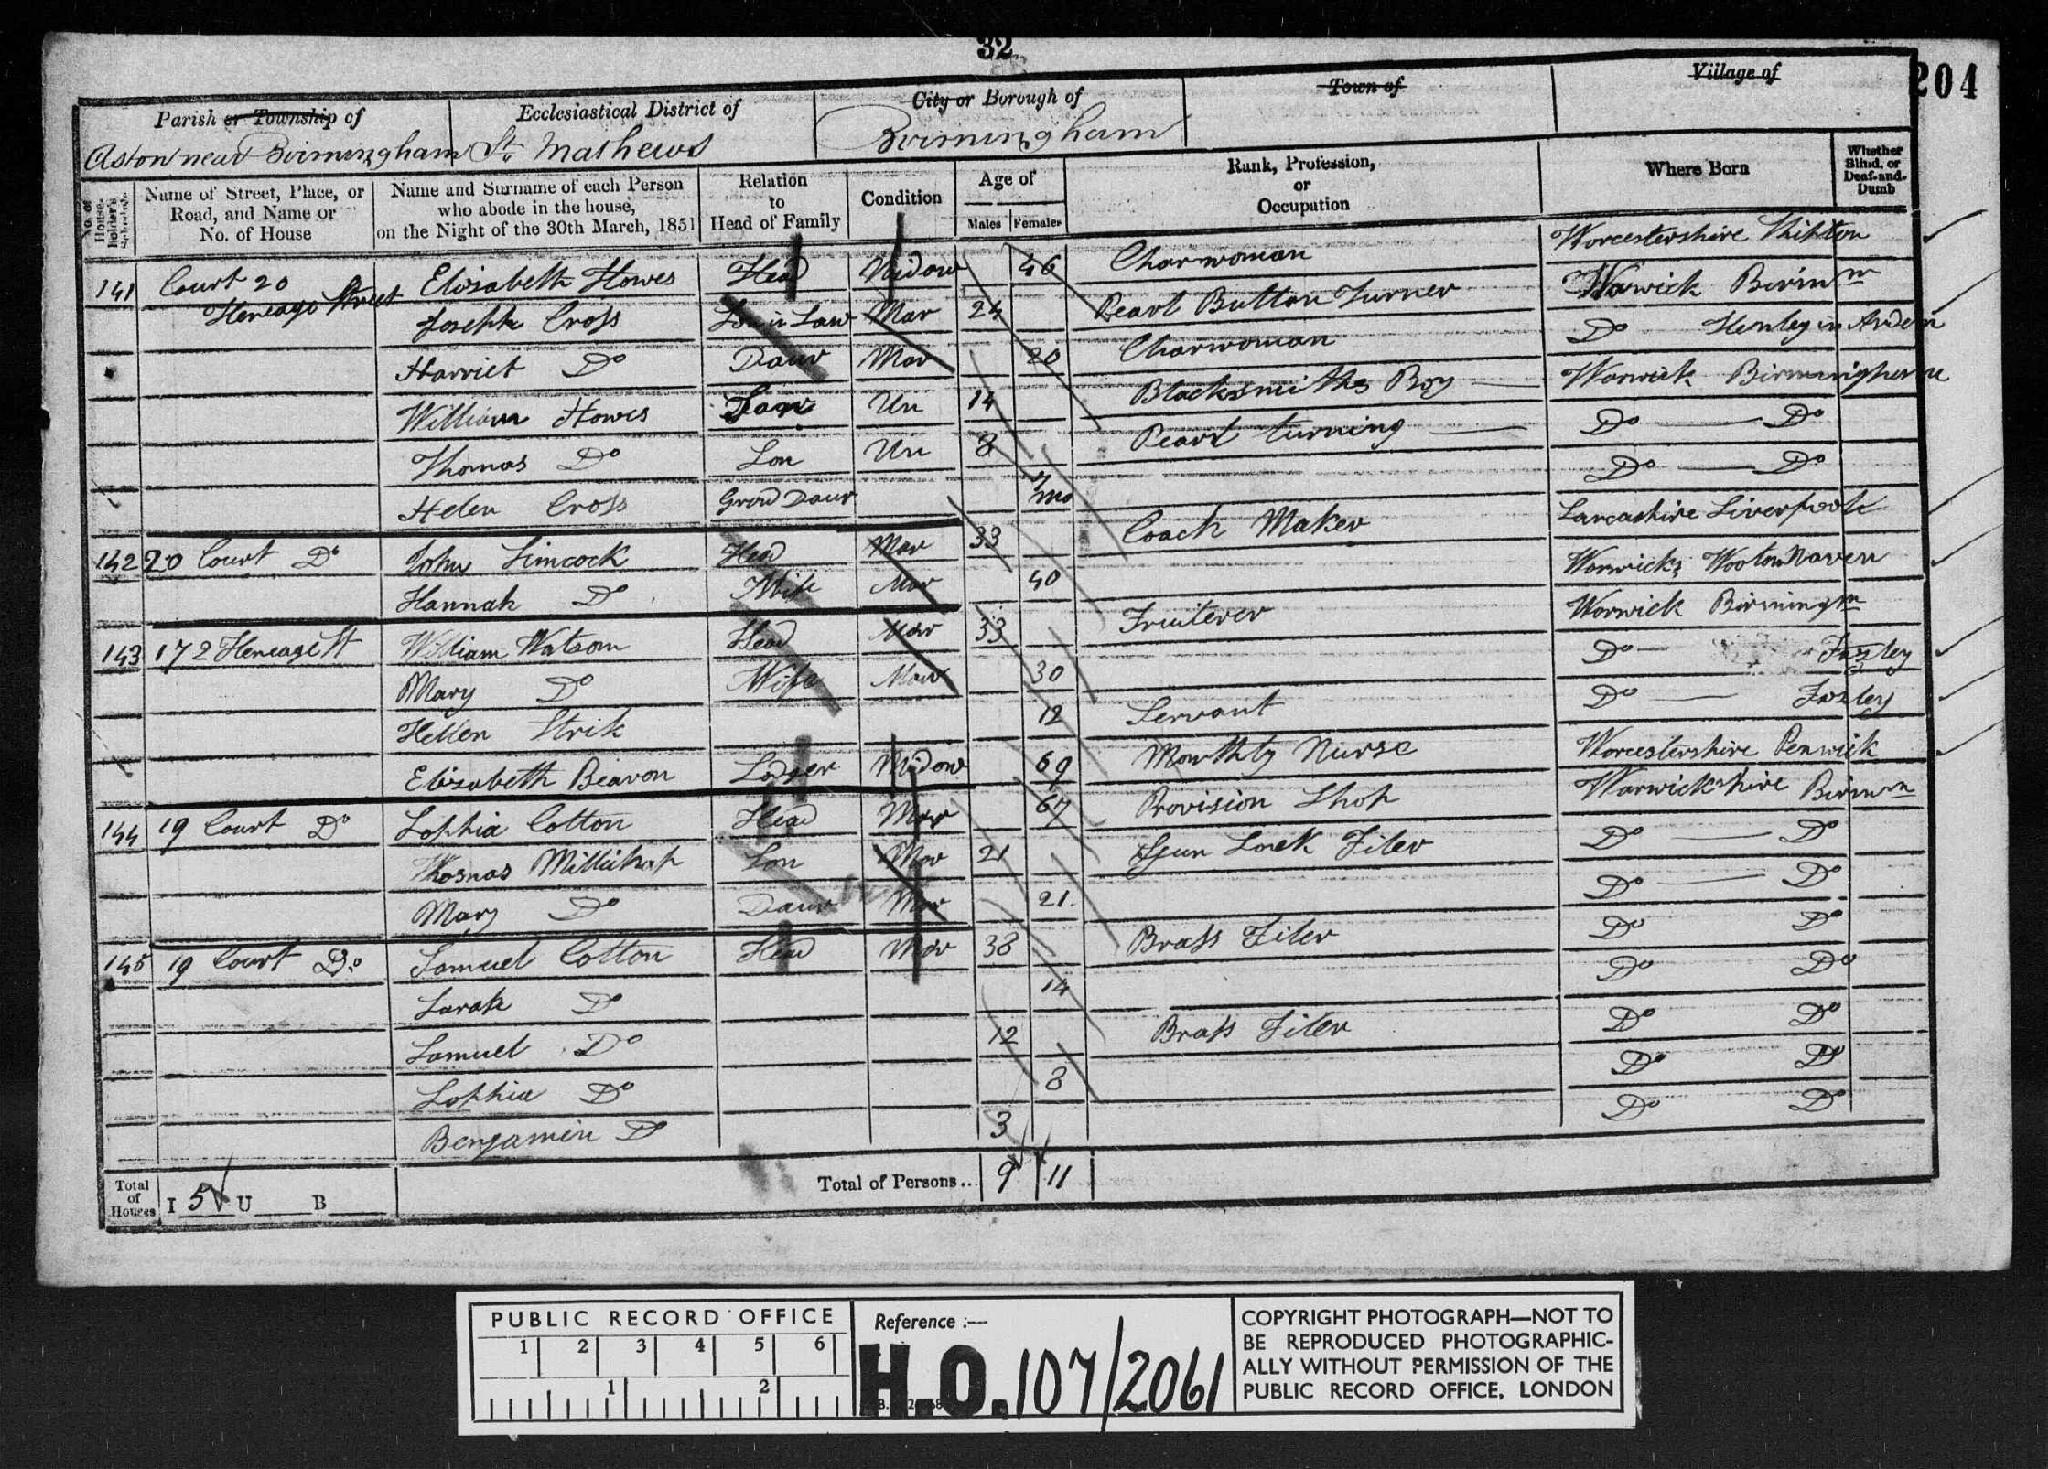 32
204
Parish or Township of Ecclesiastical District of City or Borough of Town of Village of
Aston near Birmingham St. Mathews Birmingham
No. of House-holder's Schedule
Name of Street, Place, or Road, and Name or No. of House
Name and Surname of each Person who abode in the house, on the Night of the 30th March, 1851
Relation to Head of Family
Condition
Age of
Males Females
Rank, Profession, or Occupation
Where Born
Whether Blind, or Deaf-and-Dumb
141 Court 20 Elizabeth Howes Head Widow 46 Charwoman Worcestershire
Heneage Street Joseph Cross Son in Law Mar 24 Pearl Button Turner Warwick Birmm
Harriet Do Daur Mar 20 Charwoman Do Henley in Arden
William Howes Un 14 Blacksmiths Boy Warwick Birmingham
Thomas Do Son Un 8 Pearl turning Do Do
Helen Cross Grand Daur 7 mo Do Do
142 20 Court Do John Simcock Head Mar 33 Coach Maker Lancashire Liverpool
Hannah Do Wife Mar 40 Warwicks Wooton Waven
143 172 Heneage St William Watson Head Mar 33 Fruiterer Warwick Birmingm
Mary Do Wife Mar 30 Do Fazley
Hellen Strik 12 Servant Do Fazley
Elizabeth Beavon Lodger Widow 69 Monthly Nurse Worcestershire Penwick
144 19 Court Do Sophia Cotton Head Mar 67 Provision Shop Warwickshire Birmm
Thomas Millichap Son Mar 21 Gun Lock Filer Do Do
Mary Do Daur Mar 21 Do Do
145 19 Court Do Samuel Cotton Head Mar 38 Brass Filer Do Do
Sarah Do 14 Do Do
Samuel Do 12 Brass Filer Do Do
Sophia Do 8 Do Do
Benjamin Do 3 Do Do
Total of Houses I 5 U B Total of Persons.. 9 11
PUBLIC RECORD OFFICE
1 2 3 4 5 6
1 2
Reference :—
H.O. 107/2061
COPYRIGHT PHOTOGRAPH—NOT TO
BE REPRODUCED PHOTOGRAPHIC-
ALLY WITHOUT PERMISSION OF THE
PUBLIC RECORD OFFICE, LONDON